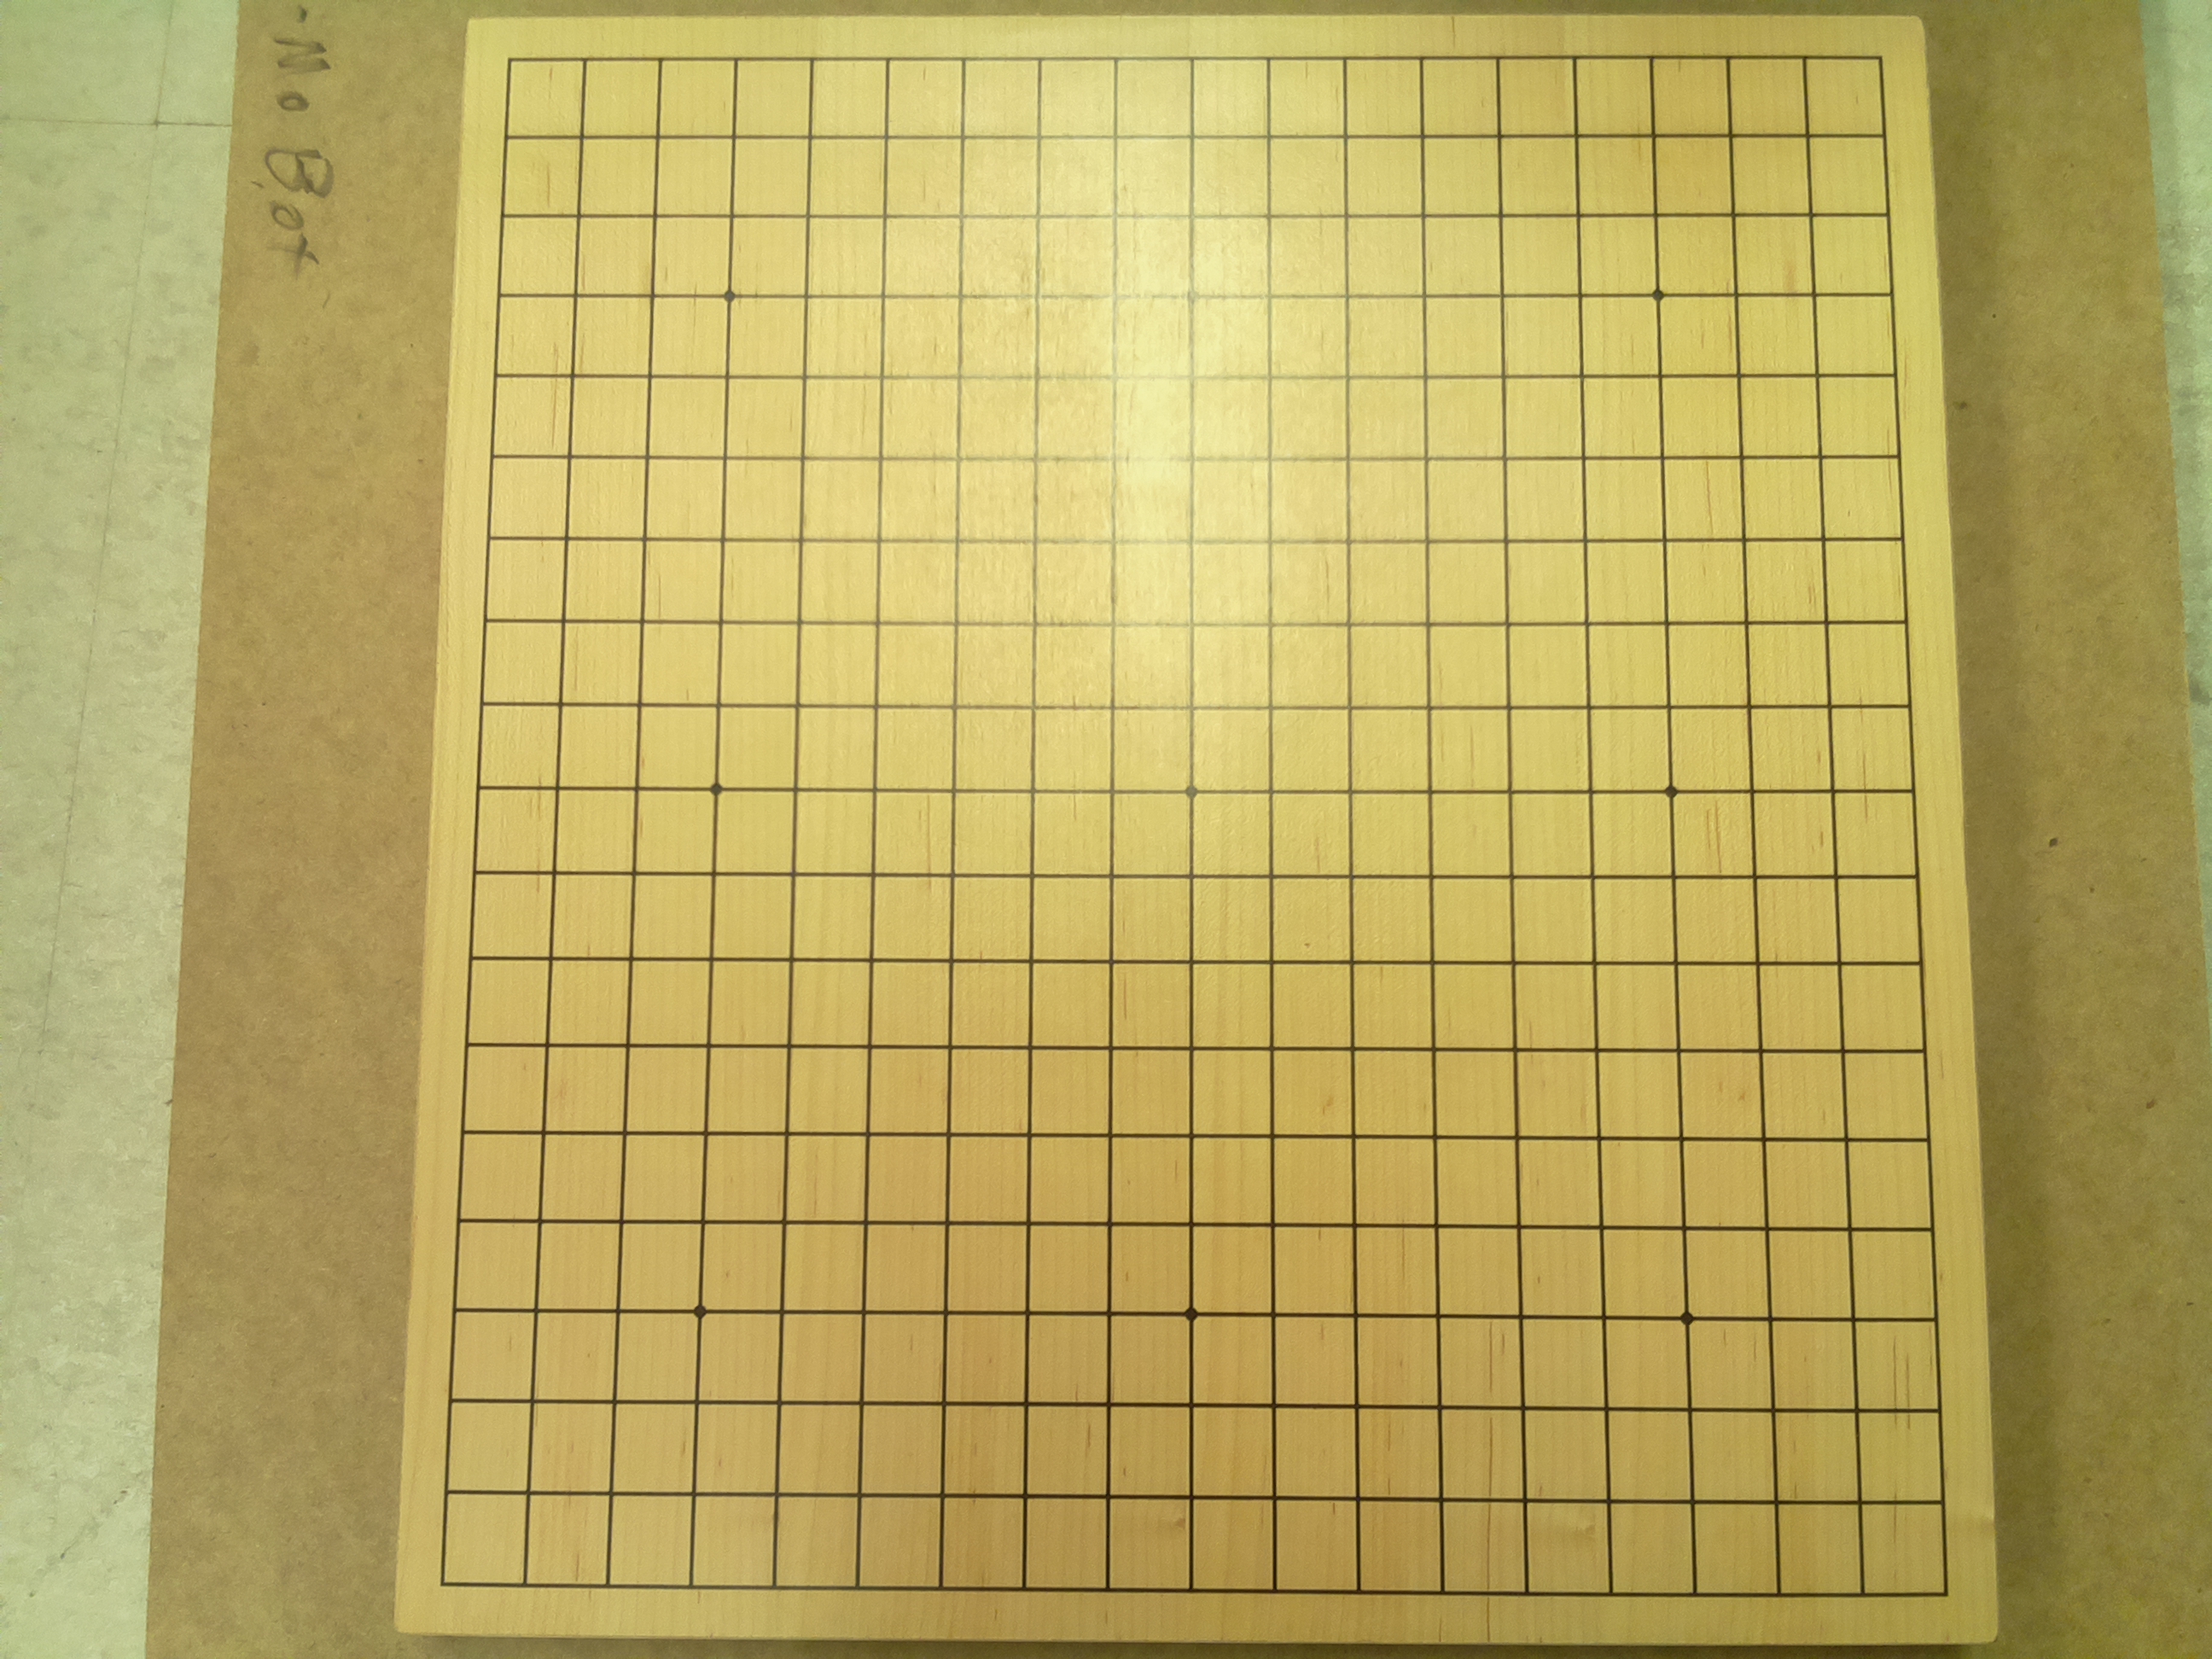 -Mo Bot